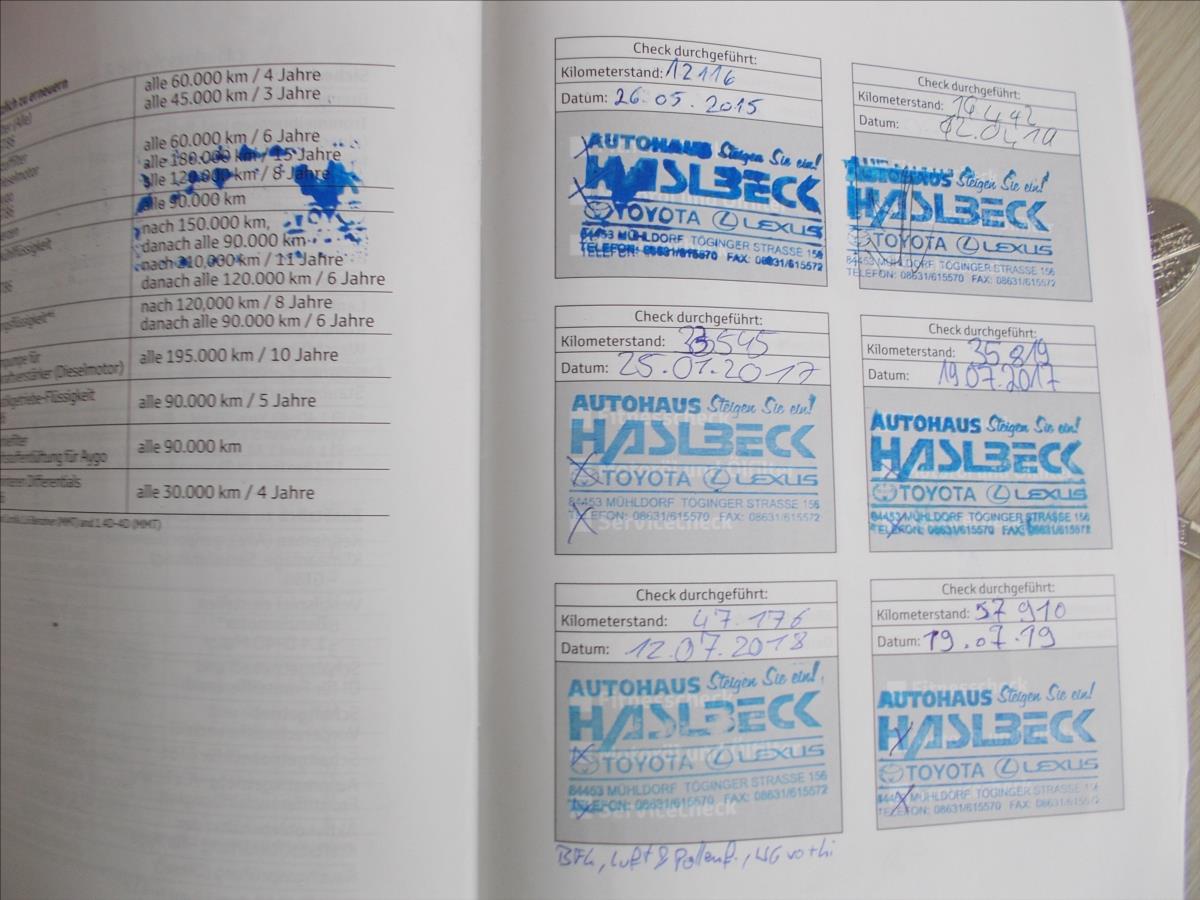 alle 60.000 km / 4 Jahre
alle 45.000 km / 3 Jahre
alle 60.000 km / 6 Jahre
alle 180.000 km / 15 Jahre
alle 120.000 km / 8 Jahre
alle 90.000 km
nach 150.000 km,
danach alle 90.000 km
nach 210.000 km / 11 Jahre
danach alle 120.000 km / 6 Jahre
nach 120.000 km / 8 Jahre
danach alle 90.000 km / 6 Jahre
(Dieselmotor)
alle 195.000 km / 10 Jahre
alle 90.000 km / 5 Jahre
für Aygo
alle 90.000 km
Differentials
alle 30.000 km / 4 Jahre
Check durchgeführt:
Kilometerstand: 12116
Datum: 26.05.2015
AUTOHAUS Steigen Sie ein!
HASLBECK
TOYOTA LEXUS
84453 MÜHLDORF TÖGINGER STRASSE 156
TELEFON: 08631/615570 FAX: 08631/615572
Check durchgeführt:
Kilometerstand:
Datum:
AUTOHAUS Steigen Sie ein!
HASLBECK
TOYOTA LEXUS
84453 MÜHLDORF TÖGINGER STRASSE 156
TELEFON: 08631/615570 FAX: 08631/615572
Check durchgeführt:
Kilometerstand: 33545
Datum: 25.01.2017
AUTOHAUS Steigen Sie ein!
HASLBECK
TOYOTA LEXUS
84453 MÜHLDORF TÖGINGER STRASSE 156
TELEFON: 08631/615570 FAX: 08631/615572
Servicecheck
Check durchgeführt:
Kilometerstand: 35819
Datum: 19.07.2017
AUTOHAUS Steigen Sie ein!
HASLBECK
TOYOTA LEXUS
84453 MÜHLDORF TÖGINGER STRASSE 156
TELEFON: 08631/615570 FAX: 08631/615572
Check durchgeführt:
Kilometerstand: 47.176
Datum: 12.07.2018
AUTOHAUS Steigen Sie ein!
Fitnesscheck
HASLBECK
TOYOTA LEXUS
84453 MÜHLDORF TÖGINGER STRASSE 156
TELEFON: 08631/615570 FAX: 08631/615572
Servicecheck
Check durchgeführt:
Kilometerstand: 57 910
Datum: 19.07.19
Fitnesscheck
AUTOHAUS Steigen Sie ein!
HASLBECK
TOYOTA LEXUS
84453 MÜHLDORF TÖGINGER STRASSE 156
TELEFON: 08631/615570 FAX: 08631/615572
Luft & Pollenf.,